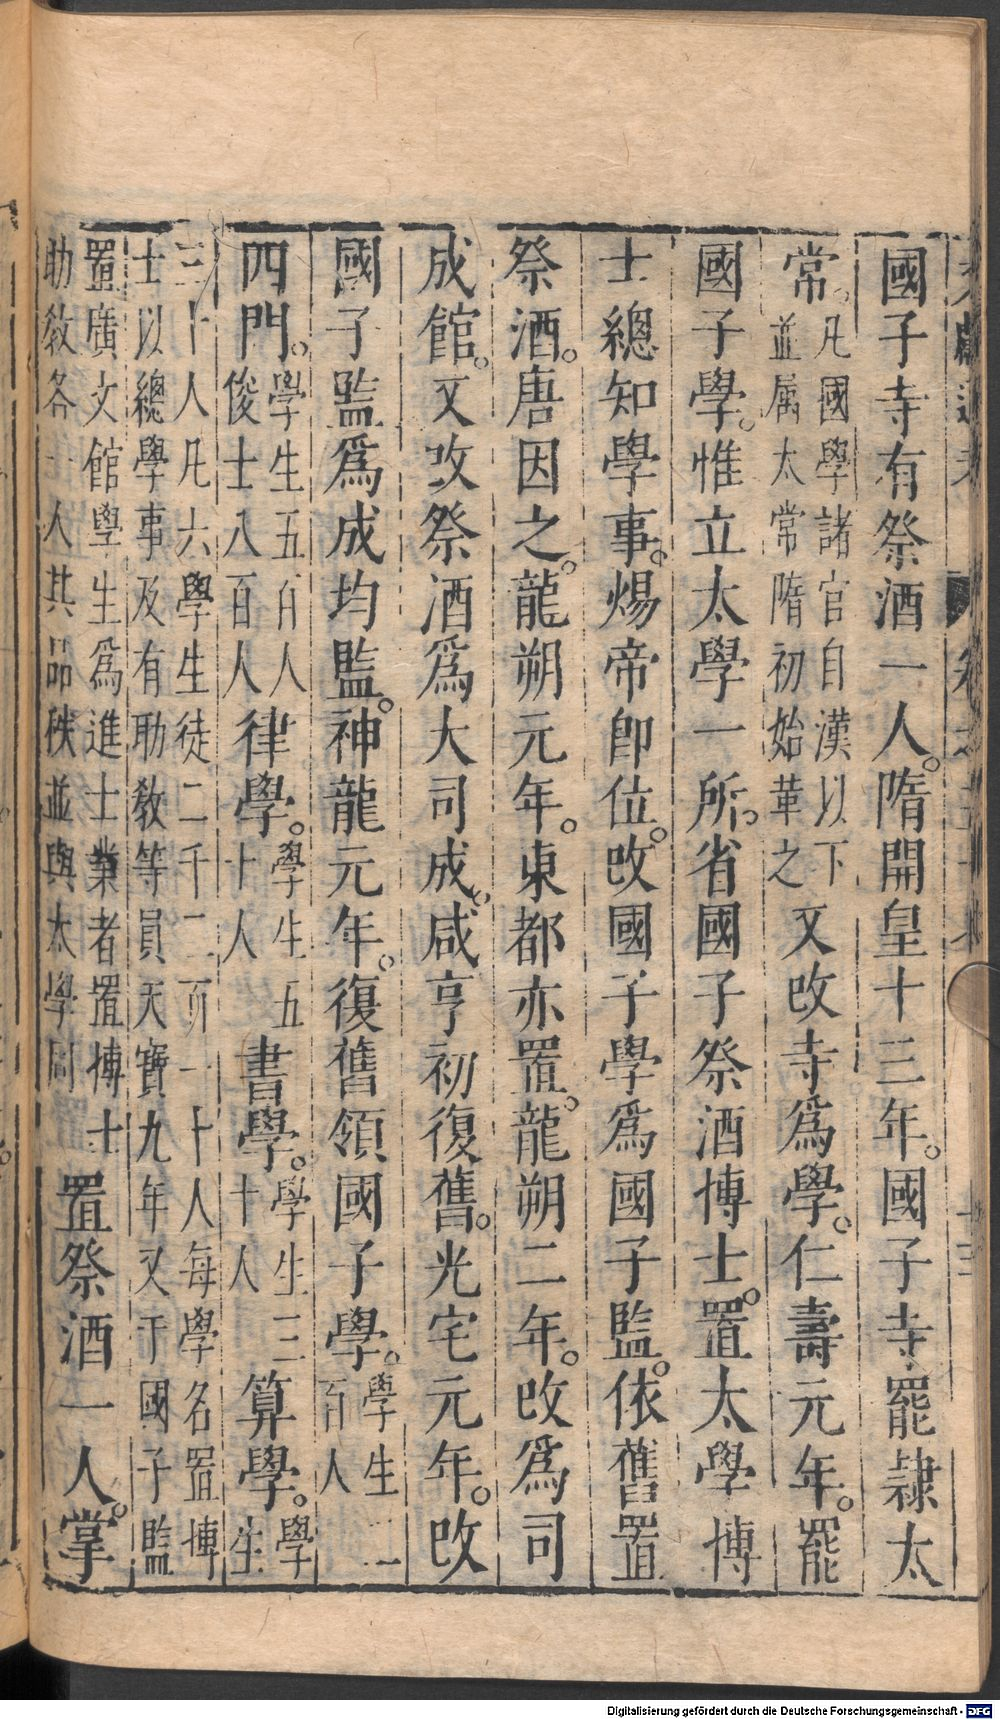 國子寺有祭酒一人。隋開皇十三年。國子寺罷隷太
常。凡國學諸官自漢以下並属太常隋初始革之又改寺爲學。仁壽元年。罷
國子學。惟立太學一所。省國子祭酒博士。置太學博
士總知學事。煬帝即位。改國子學爲國子監。依舊置
祭酒。唐因之。龍朔元年。東都亦置。龍朔二年。改爲司
成館。又改祭酒爲大司成。咸亨初復舊。光宅元年。改
國子監爲成均監。神龍元年。復舊領國子學。學生二百人
四門。學生五百人俊士八百人律學。學生五十人書學。學生三十人算學。學生
三十人凡六學生徒二千二百一十人每學名置博士以總學事及有助敎等員天寶九年又于國子監
置廣文館學生爲進士業者置博士助敎各一人其品秩並與太學同置祭酒一人。掌
Digitalisierung gefördert durch die Deutsche Forschungsgemeinschaft - DFG